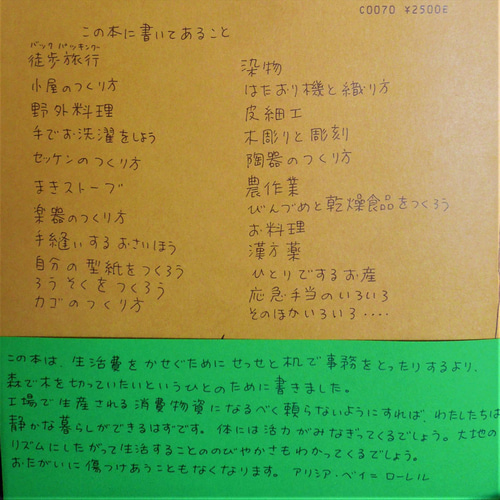 C0070 ¥2500E
この本に書いてあること
バックパッキング
徒歩旅行
小屋のつくり方
野外料理
手でお洗濯をしよう
セッケンのつくり方
まきストーブ
楽器のつくり方
手縫いするおさいほう
自分の型紙をつくろう
ろうそくをつくろう
カゴのつくり方
染物
はたおり機と織り方
皮細工
木彫りと彫刻
陶器のつくり方
農作業
びんづめと乾燥食品をつくろう
お料理
漢方薬
ひとりでするお産
応急手当のいろいろ
そのほかいろいろ‥‥
この本は、生活費をかせぐためにせっせと机で事務をとったりするより、
森で木を切っていたいというひとのために書きました。
工場で生産される消費物資になるべく頼らないようにすれば、わたしたちは
静かな暮らしができるはずです。体には活力がみなぎってくるでしょう。大地の
リズムにしたがって生活することののびやかさもわかってくるでしょう。
おたがいに傷つけあうこともなくなります。アリシア・ベイ＝ローレル